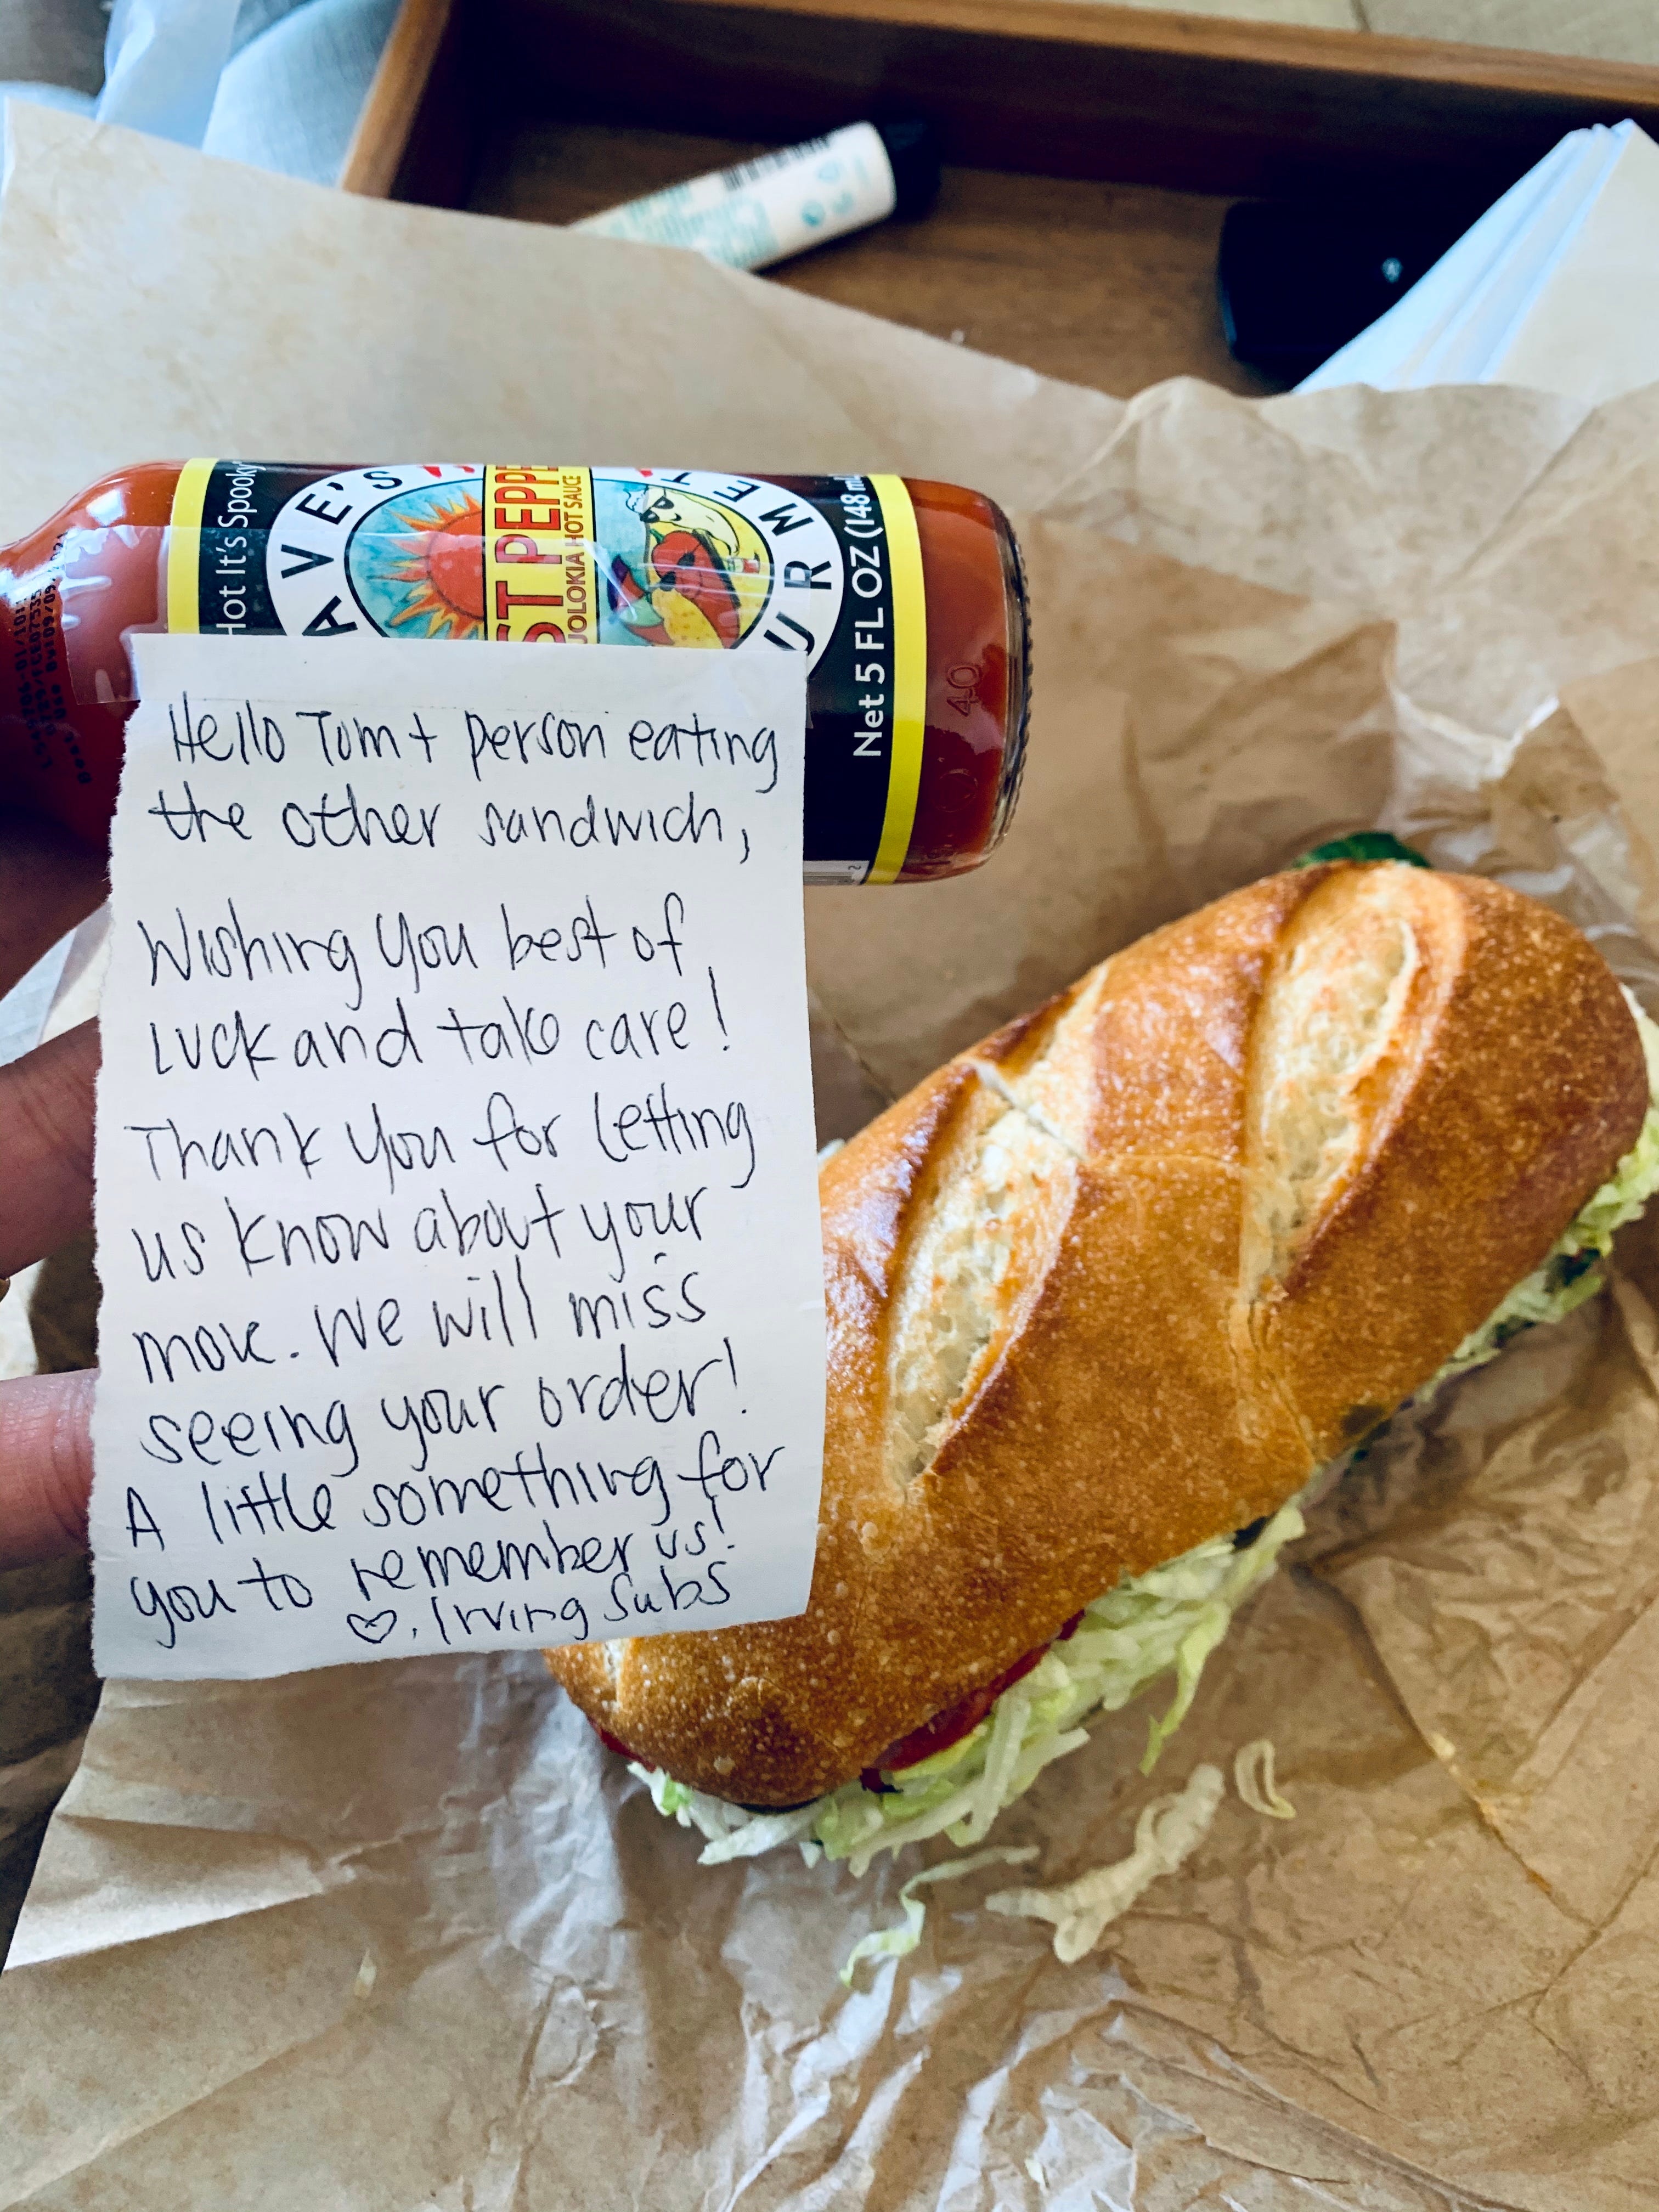 Hot It's Spooky
AVE'S
URMET
ST PEPPE
JOLOKIA HOT SAUCE
Net 5 FL OZ (148 mL
40
Hello Tom + person eating
the other sandwich,
Wishing you best of
luck and take care!
Thank you for letting
us know about your
move. We will miss
seeing your order!
A little something for
you to remember us!
♡, Irving Subs